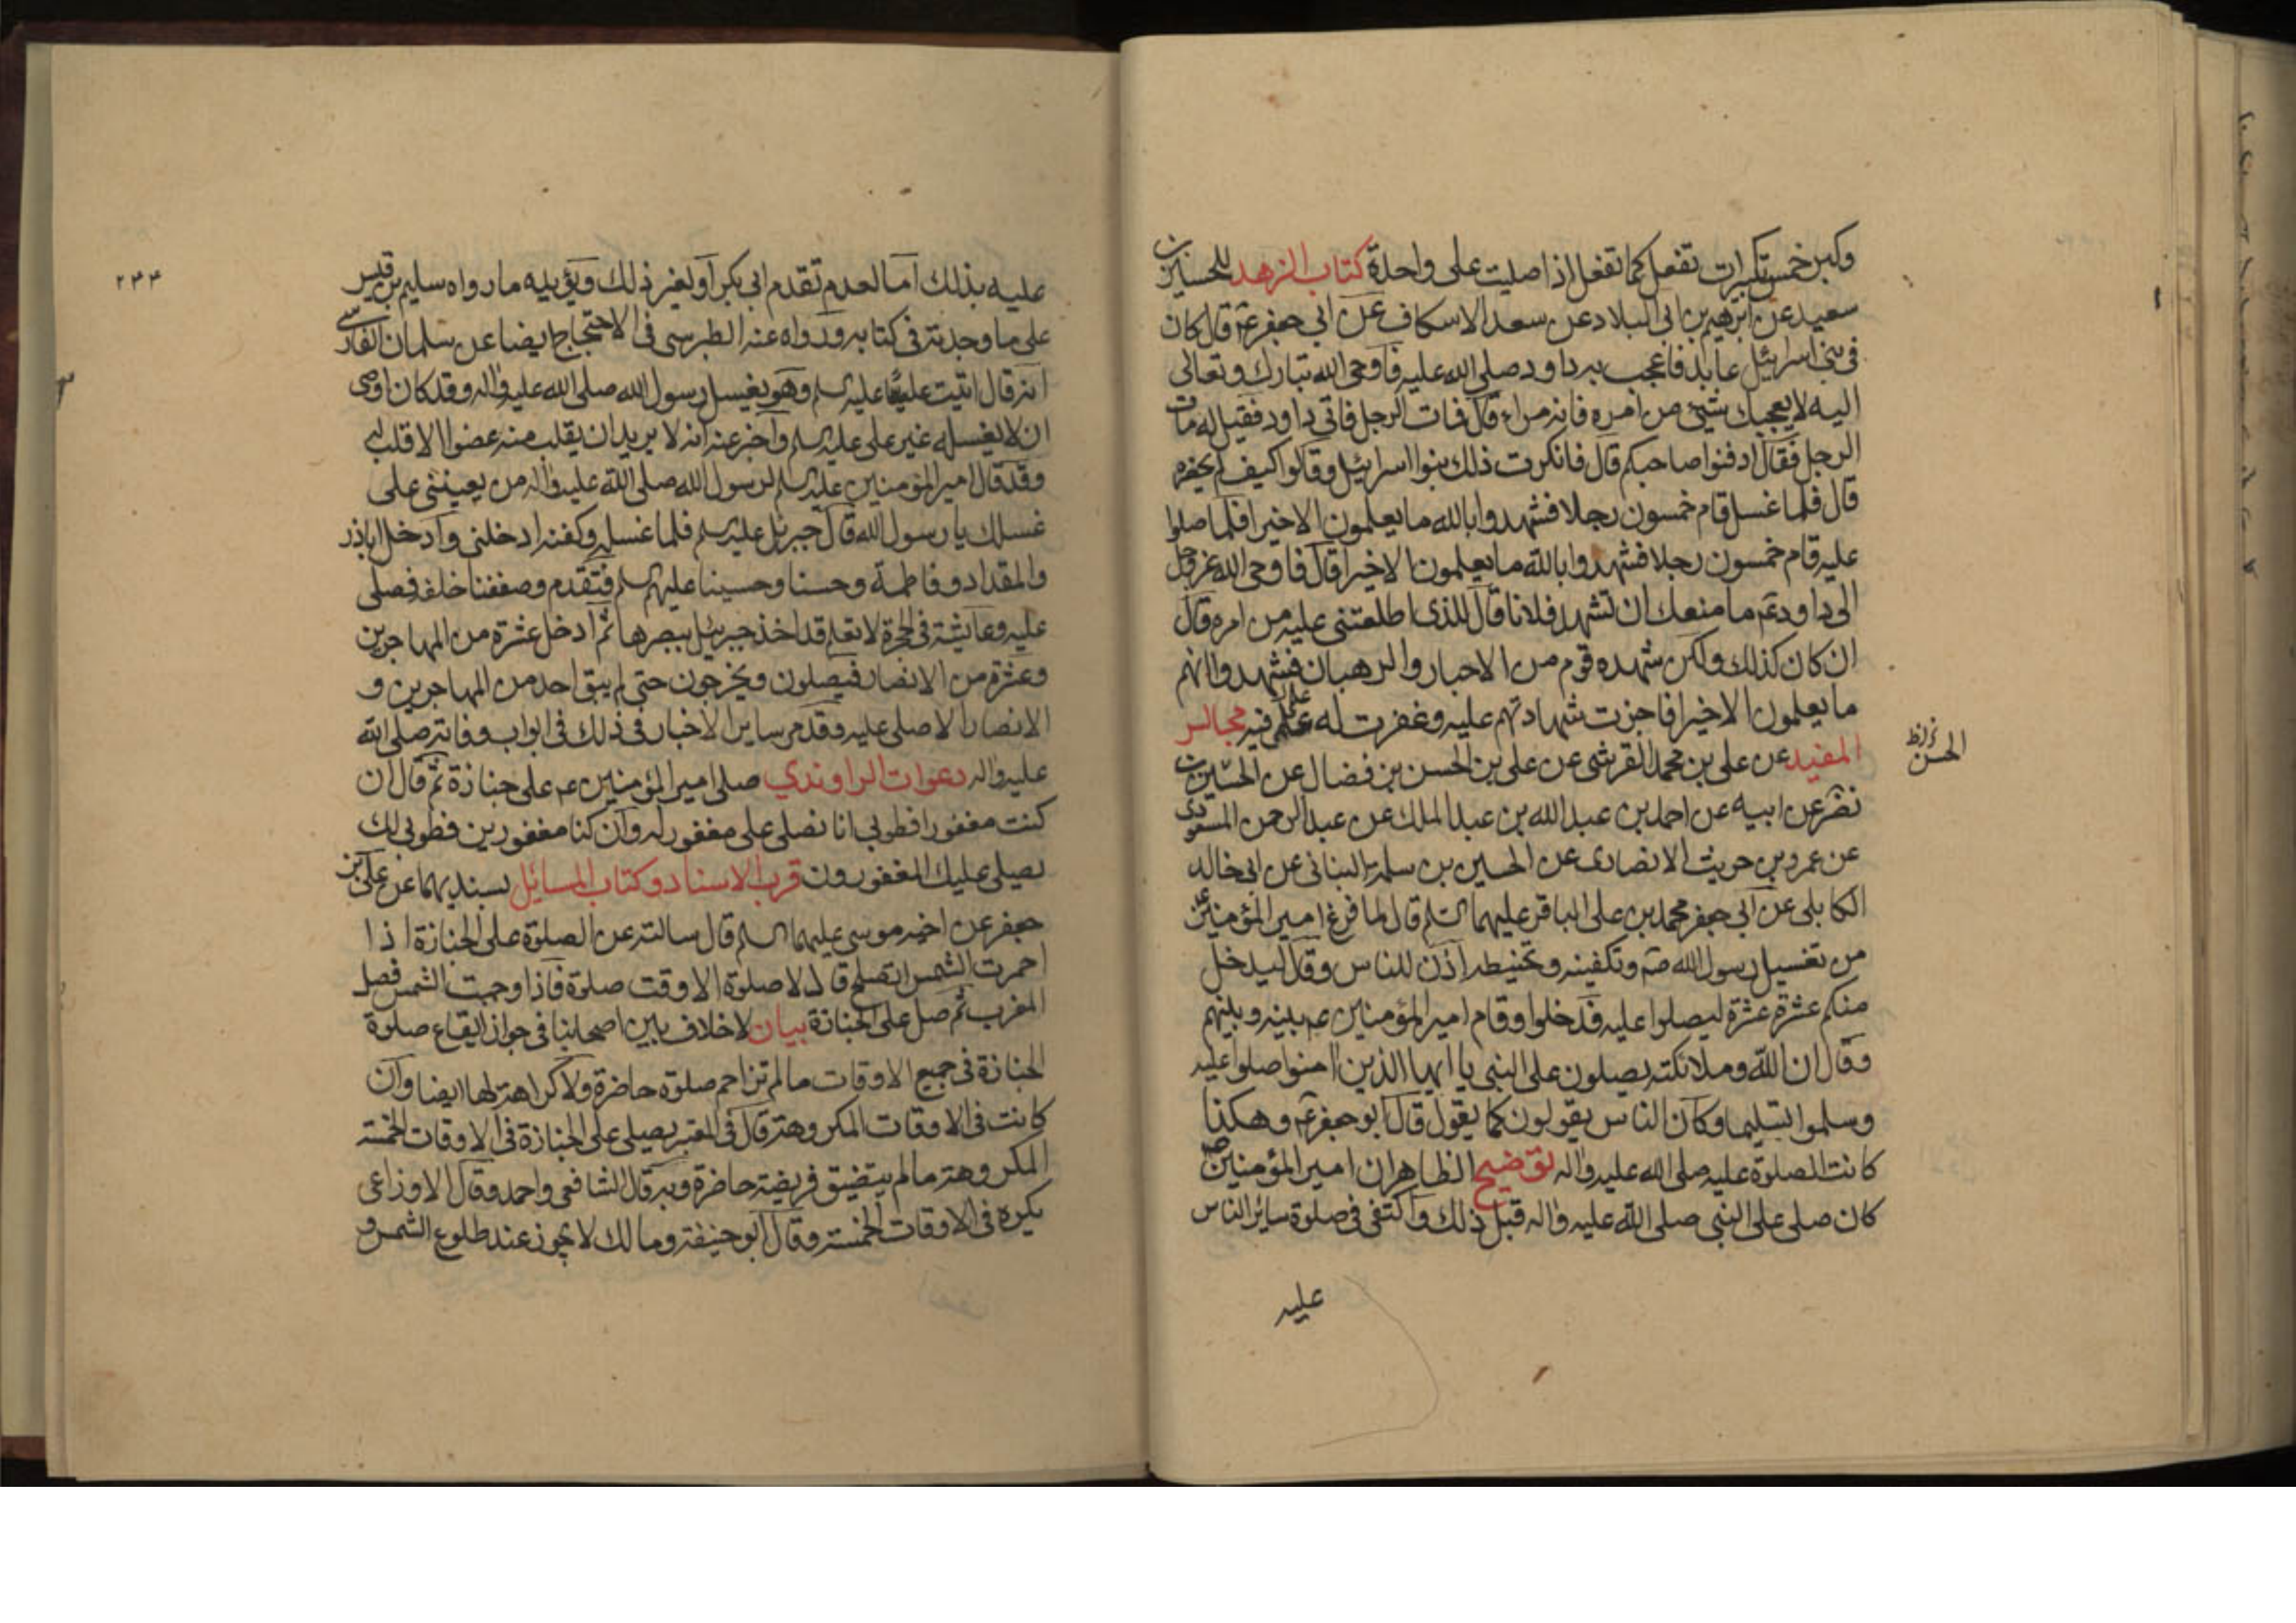 وكبر خمس تكبيرات تفعل كما تفعل اذا صليت على واحدة كتاب الزهد للحسين بن
سعيد عن ابرهيم بن ابى البلاد عن سعد الاسكاف عن ابي جعفر عم قال كان
فى بنى اسرائيل عابد فاعجب به داود صلى الله عليه فاوحى الله تبارك وتعالى
اليه لا يعجبك شيئ من امره فانه مراء قال فمات الرجل فاتى داود فقيل له مات
الرجل فقال ادفنوا صاحبكم قال فانكرت ذلك بنوا اسرائيل وقالوا كيف لم يحضره
قال فلما غسل قام خمسون رجلا فشهدوا بالله ما يعلمون الا خيرا فلما صلوا
عليه قام خمسون رجلا فشهدوا بالله ما يعلمون الا خيرا قال فاوحى الله عز وجل
الى داود عم ما منعك ان تشهد فلانا قال للذى اطلعتنى عليه من امره قال
ان كان كذلك ولكن شهده قوم من الاحبار والرهبان فشهدوا انهم
ما يعلمون الا خيرا فاجزت شهادتهم عليه وغفرت له علمى فيه مجالس
المفيد عن على بن محمد القرشى عن على بن الحسن بن فضال عن الحسين بن
الحسن ظ
نضر عن ابيه عن احمد بن عبد الله بن عبد الملك عن عبد الرحمن المسعودى
عن عمرو بن حويث الانصارى عن الحسين بن سلمة البنانى عن ابى خالد
الكابلى عن ابى جعفر محمد بن على الباقر عليهما السلم قال لما فرغ امير المؤمنين عم
من تغسيل رسول الله صم وتكفينه وتحنيطه اذن للناس وقال ليدخل
منكم عشرة عشرة ليصلوا عليه فدخلوا وقام امير المؤمنين عم بينه وبينهم
وقال ان الله وملائكته يصلون على النبى يا ايها الذين امنوا صلوا عليه
وسلموا تسليما وكان الناس يقولون كما يقول قال ابو جعفر عم وهكذا
كانت الصلوة عليه صلى الله عليه واله توضيح الظاهر ان امير المؤمنين صم
كان صلى على النبى صلى الله عليه واله قبل ذلك واكتفى فى صلوة سائر الناس
عليه
٢٣٣
عليه بذلك اما لعدم تقدم ابى بكر او لغير ذلك ويؤيده ما رواه سليم بن قيس
على ما وجدته فى كتابه ورواه عنه الطبرسى فى الاحتجاج ايضا عن سلمان الفارسى
انه قال اتيت عليا عليه السلم وهو يغسل رسول الله صلى الله عليه واله وقد كان اوصى
ان لا يغسله غير على عليه السلم واخبر عنه انه لا يريد ان يقلب منه عضوا الا قلب له
وقد قال امير المؤمنين عليه السلم لرسول الله صلى الله عليه واله من يعيننى على
غسلك يا رسول الله قال جبرئيل عليه السلم فلما غسله وكفنه ادخلنى وادخل اباذر
والمقداد وفاطمة وحسنا وحسينا عليهم السلم فتقدم وصففنا خلفه فصلى
عليه وعايشة فى الحجرة لا تعلم قد اخذ جبرئيل ببصرها ثم ادخل عشرة من المهاجرين
وعشرة من الانصار فيصلون ويخرجون حتى لم يبق احد من المهاجرين و
الانصار الا صلى عليه وقد مر ساير الاخبار فى ذلك فى ابواب وفاته صلى الله
عليه واله دعوات الراوندي صلى امير المؤمنين عم على جنازة ثم قال ان
كنت مغفورا فطوبى انا نصلى على مغفور له وان كنا مغفورين فطوبى لك
يصلى عليك المغفورون قرب الاسناد وكتاب المسائل بسنديهما عن على بن
جعفر عن اخيه موسى عليهما السلم قال سالته عن الصلوة على الجنازة اذا
احمرت الشمس اتصلح قال لا صلوة الا وقت صلوة فاذا وجبت الشمس فصل
المغرب ثم صل على الجنازة بيان لا خلاف بين اصحابنا فى جواز ايقاع صلوة
الجنازة فى جميع الاوقات ما لم تزاحم صلوة حاضرة ولا كراهة لها ايضا وان
كانت فى الاوقات المكروهة قال فى المعتبر يصلى على الجنازة فى الاوقات الخمسة
المكروهة ما لم يتضيق فريضة حاضرة وبه قال الشافعى واحمد وقال الاوزاعى
يكره فى الاوقات الخمسة وقال ابو حنيفة ومالك لا يجوز عند طلوع الشمس و